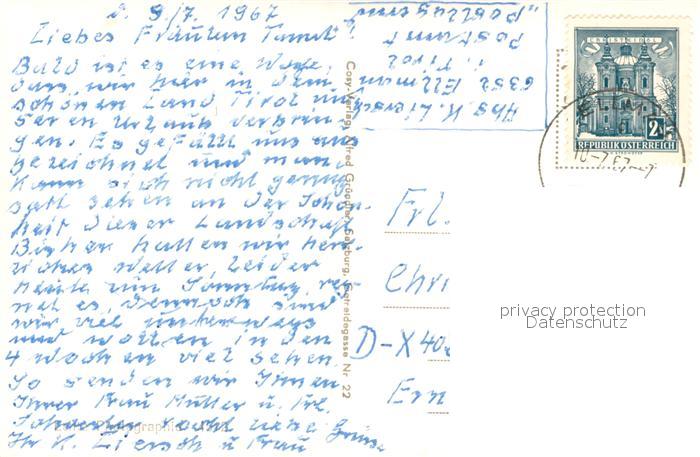 d. 9/7. 1967
Liebes Fräulein
Bald ist es eine Woche,
dass wir hier in dem
schönen Land Tirol un-
seren Urlaub verbrin-
gen. Es gefällt uns aus-
gezeichnet und man
kann sich nicht genug
satt sehen an der Schön-
heit dieser Landschaft.
Bisher hatten wir herr-
liches Wetter, leider
heute zum Sonntag reg-
net es, dennoch sind
wir viel unterwegs
und wollen in den
4 Wochen viel sehen.
So senden wir Ihnen
Ihrer Frau Mutter u. Frl.
recht liebe Grüsse
Ihr K. Ziersch u Frau
Cosy-Verlag, Alfred Gründler, Salzburg, Getreidegasse Nr. 22
Abs K.
6352 Ellmau
i. Tirol
Postamt
"Postlagernd"
CHRISTKINDL
2
REPUBLIK ÖSTERREICH
Frl.
Chri
D-X 40
Ern
privacy protection
Datenschutz